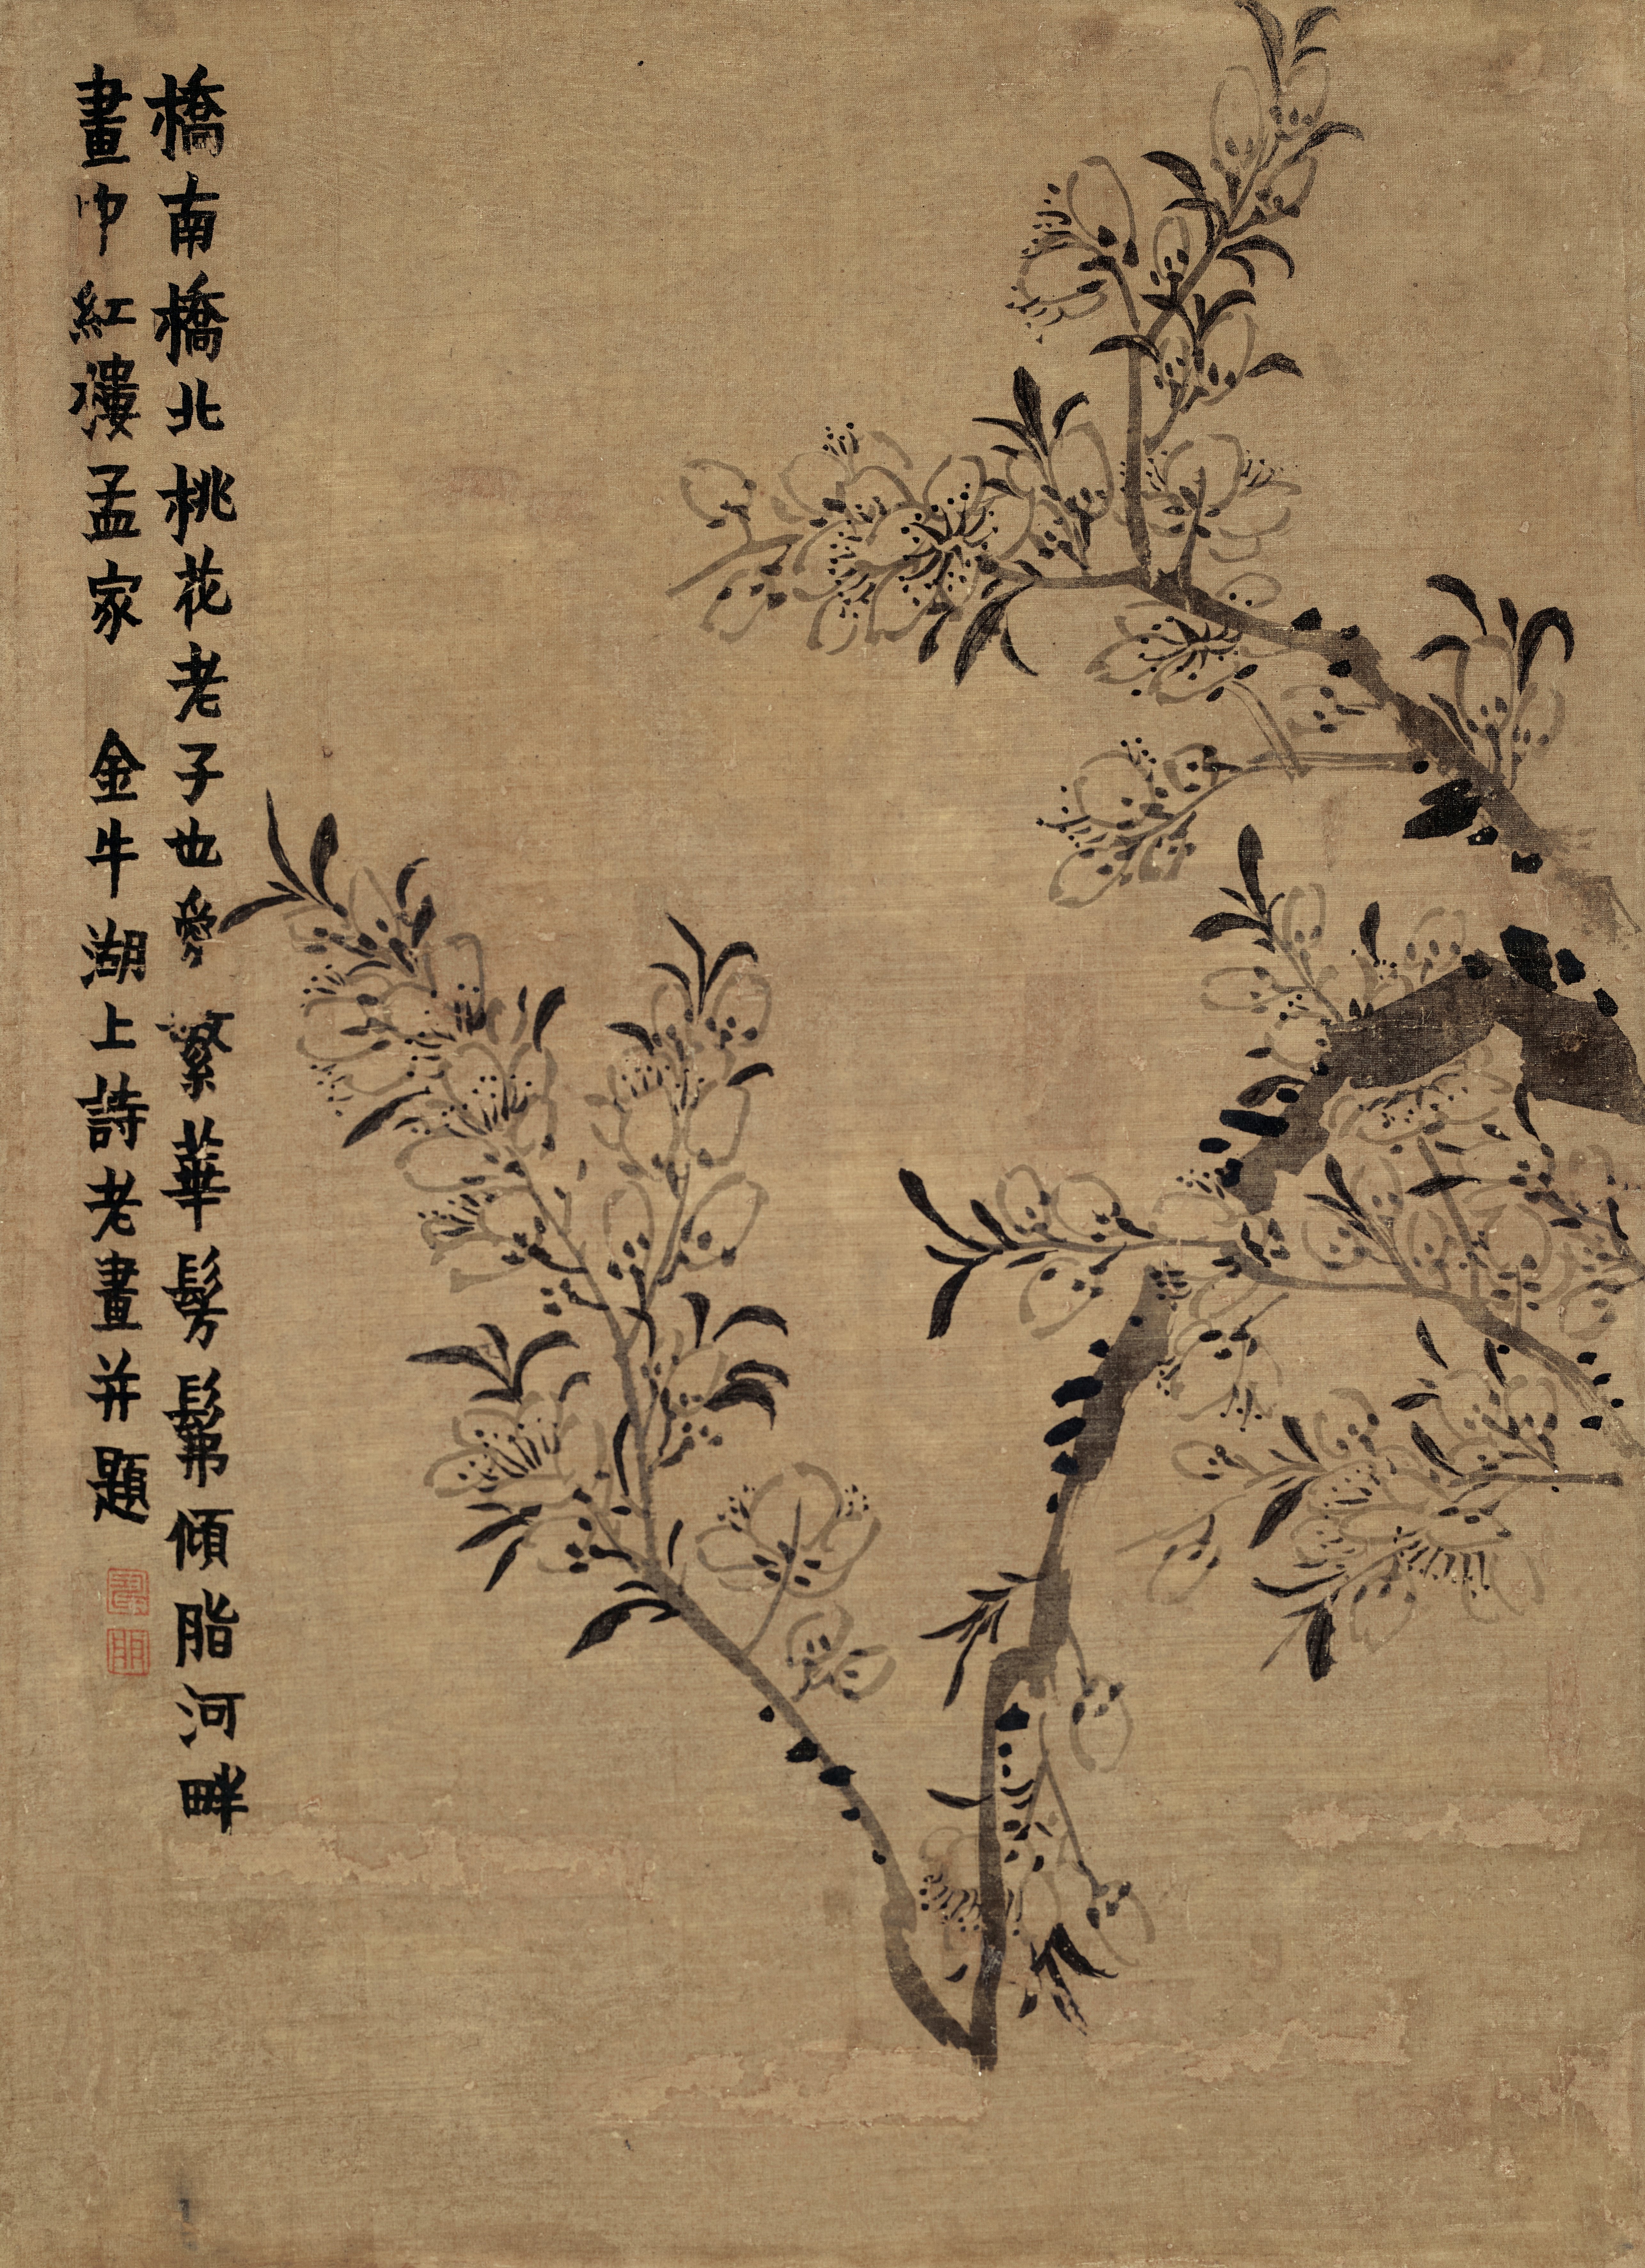 橋南橋北桃花老子也愛繁華髣髴傾脂河畔
畫中紅濕孟家 金牛湖上詩老畫并題